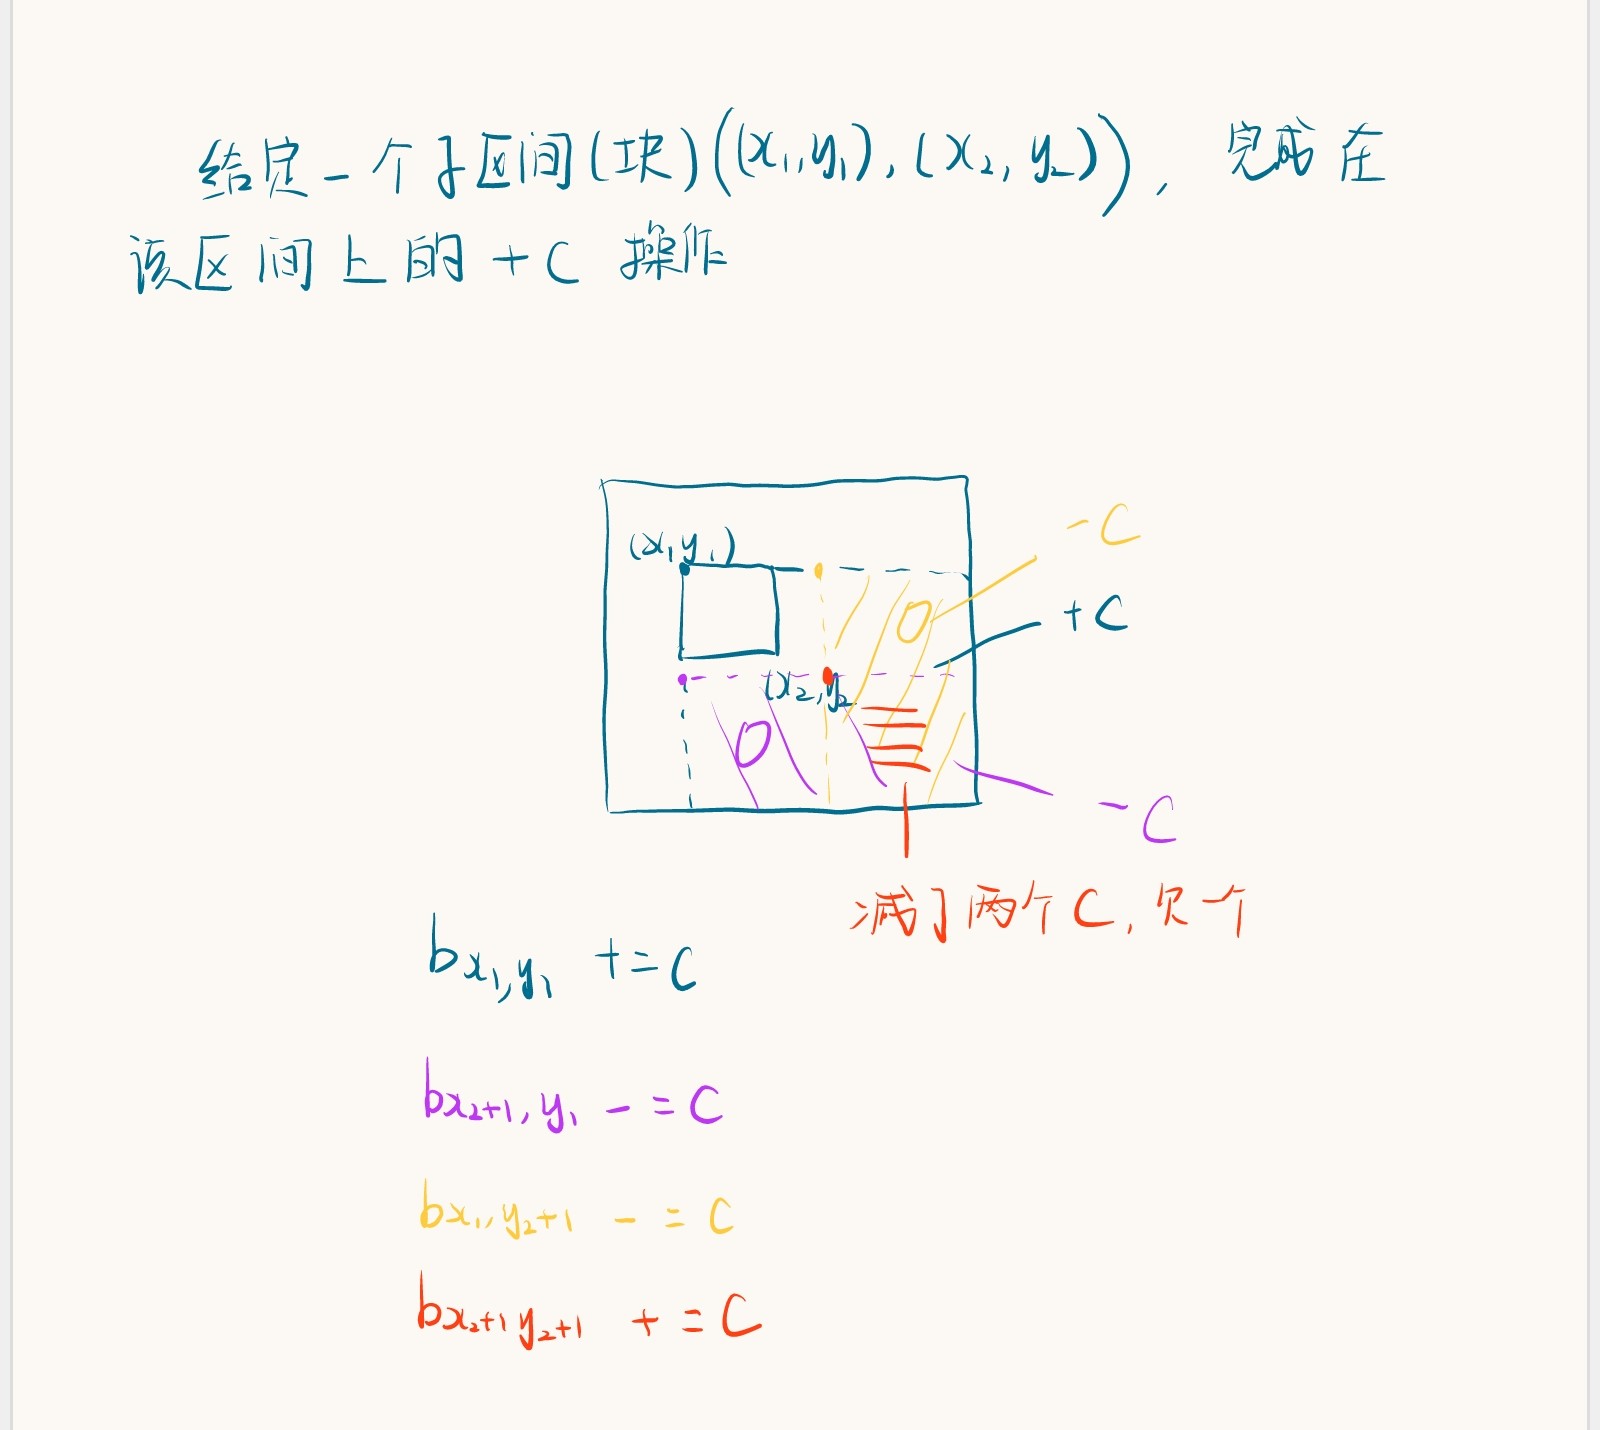 给定一个子区间(块)((x₁,y₁),(x₂,y₂)),完成在
该区间上的+C操作
(x₁y₁)
-C
+C
(x₂,y₂
0
0
-C
减了两个C,欠一个
bx₁,y₁ += C
bx₂+1,y₁ -= C
bx₁,y₂+1 -= C
bx₂+1y₂+1 += C